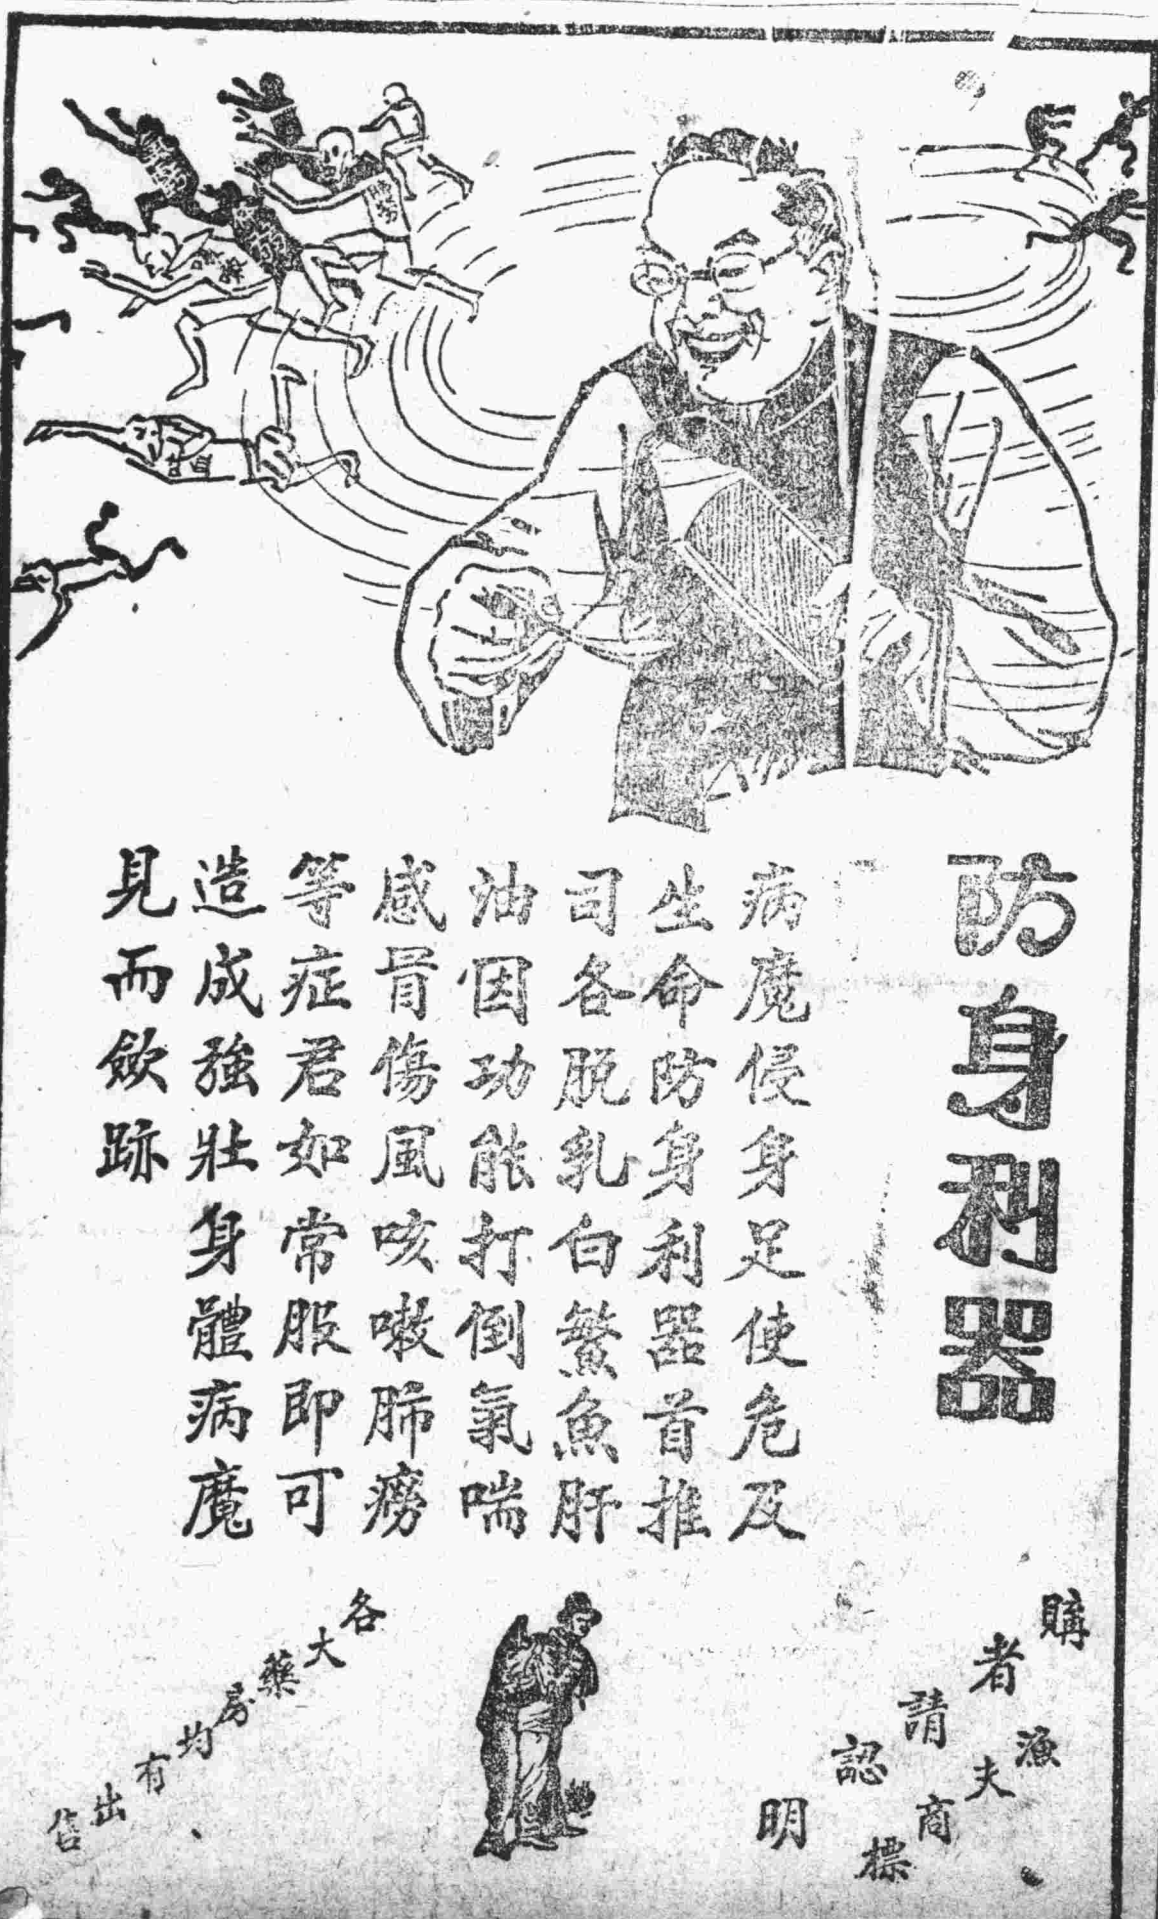 防身利器
病魔侵身足使危及
生命防身利器首推
司各脱乳白鰵魚肝
油因功能打倒氣喘
感冒傷風咳嗽肺癆
等症君如常服即可
造成強壯身體病魔
見而歛跡
購者請認明
漁夫商標
各大藥房均有出售